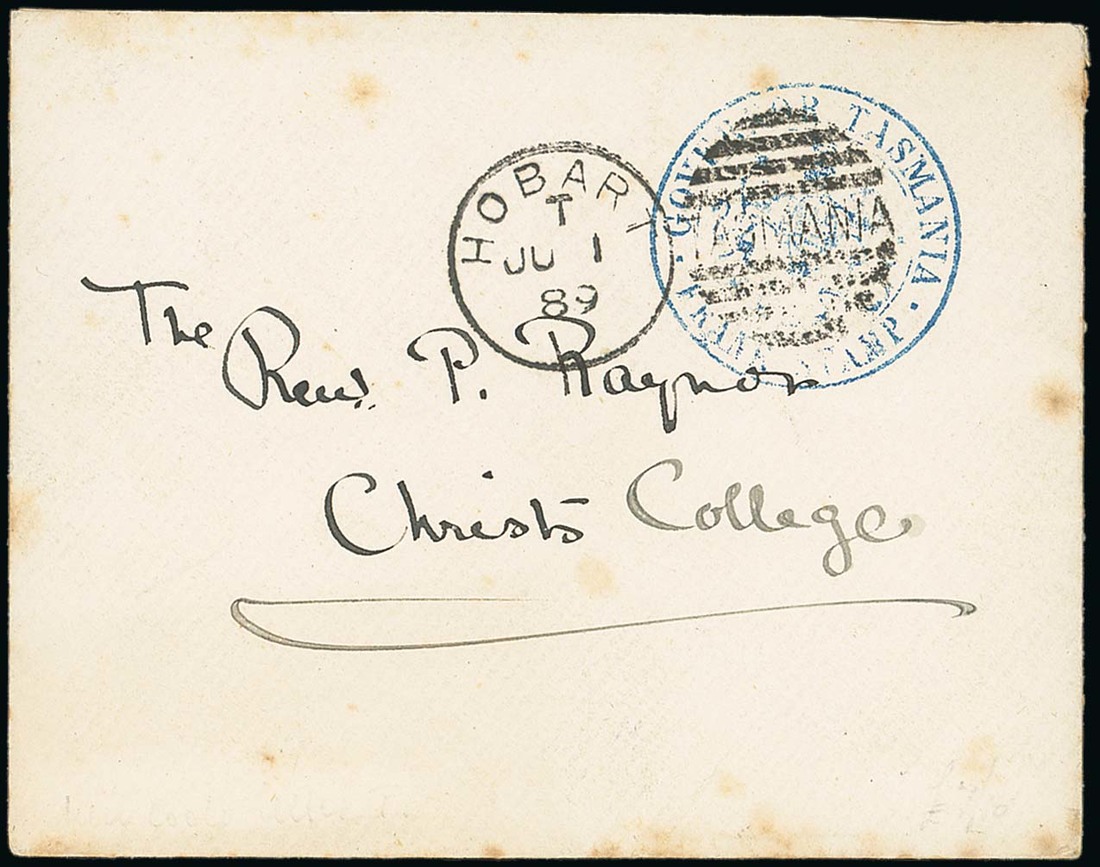 HOBART
T
JU 1
89
GOVERNOR TASMANIA
STAMP
TASMANIA
The
Rev. P. Raynor
Christs College